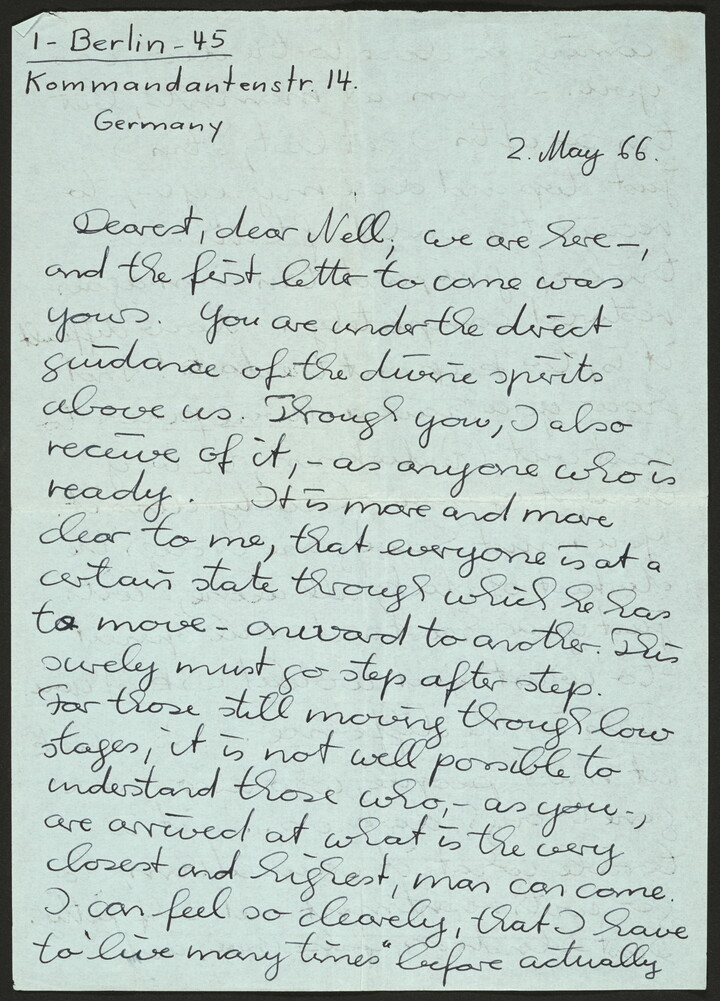 1 - Berlin - 45
Kommandantenstr. 14.
Germany
2. May 66.
Dearest, dear Nell, we are here -,
and the first letter to come was
yours. You are under the direct
guidance of the divine spirits
above us. Through you, I also
receive of it, - as anyone who is
ready. It is more and more
clear to me, that everyone is at a
certain state through which he has
to move - onward to another. This
surely must go step after step.
For those still moving through low
stages, it is not well possible to
understand those who, - as you -,
are arrived at what is the very
closest and highest, man can come.
I can feel so clearely, that I have
to "live many times" before actually